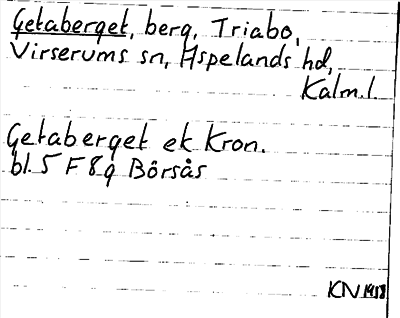 Getaberget, berg, Triabo,
Virserums sn, Aspelands hd,
Kalm.l.
Getaberget ek Kron.
bl. 5 F 8g Börsås
KN